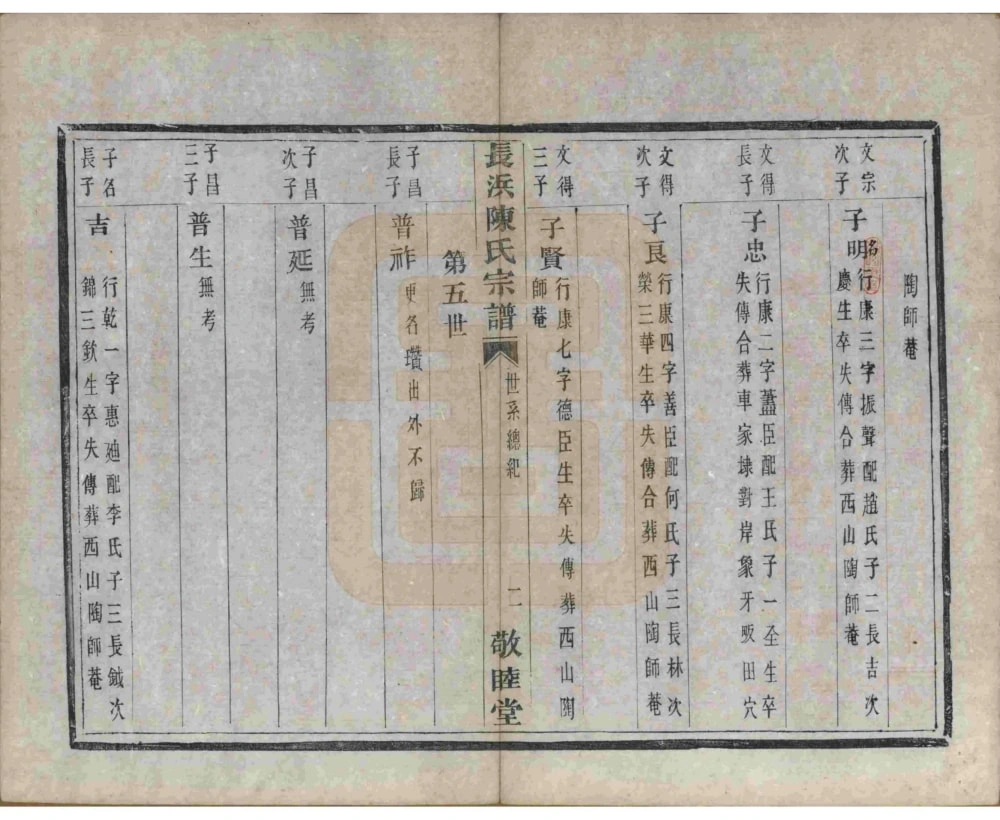 陶師菴
文宗
次子
子明
行康三字振聲配趙氏子二長吉次
慶生卒失傳合葬西山陶師菴
文得
長子
子忠
行康二字藎臣配王氏子一圣生卒
失傳合葬車家埭對岸象牙畈田穴
文得
次子
子良
行康四字善臣配何氏子三長林次
榮三華生卒失傳合葬西山陶師菴
文得
三子
子賢
行康七字德臣生卒失傳葬西山陶
師菴
長浜陳氏宗譜
世系總紀
二
敬睦堂
第五世
子昌
長子
普祚
更名瓚出外不歸
子昌
次子
普延
無考
子昌
三子
普生
無考
子名
長子
吉
行乾一字惠廸配李氏子三長鉞次
錦三欽生卒失傳葬西山陶師菴